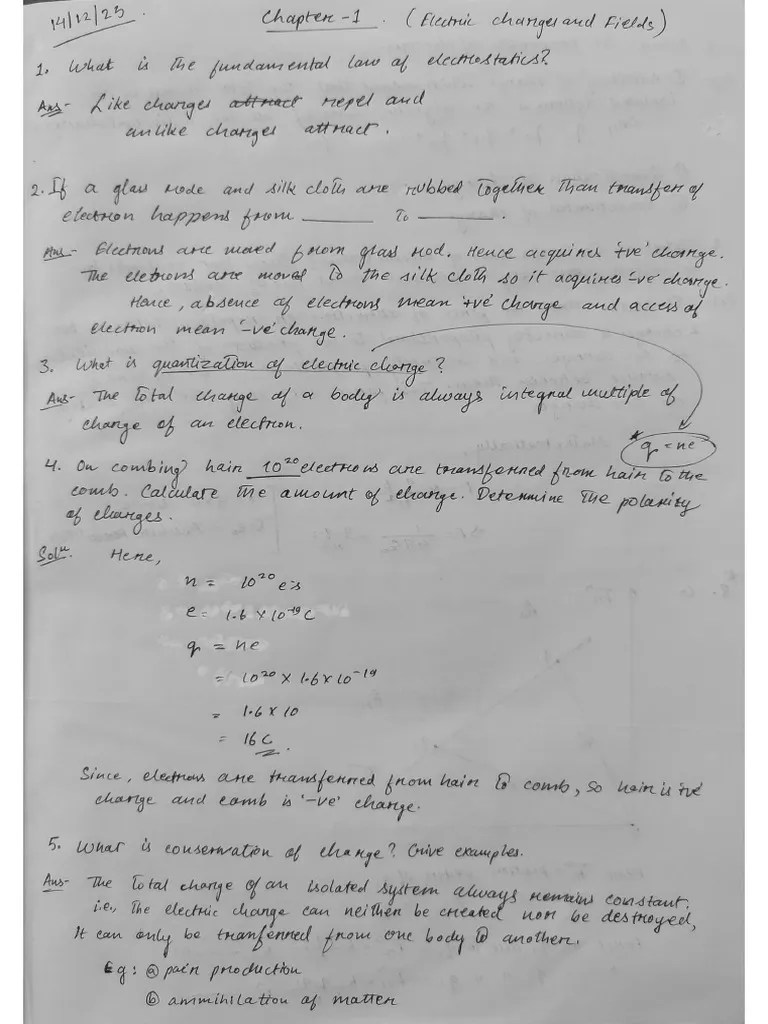 14/12/23. Chapter-1. (Electric charges and Fields)
1. What is the fundamental law of electrostatics?
Ans- Like charges attract repel and
unlike charges attract.
2. If a glass rode and silk cloth are rubbed together than transfer of
electron happens from ______ to ______.
Ans- Electrons are moved from glass rod. Hence acquires '+ve' charge.
The eletrons are moved to the silk cloth so it acquires '-ve' charge.
Hence, absence of electrons mean '+ve' charge and access of
electron mean '-ve' charge.
3. What is quantization of electric charge?
Ans- The total charge of a body is always integral multiple of
charge of an electron.
* q = ne
4. On combing hair 10²⁰ electrons are transferred from hair to the
comb. Calculate the amount of charge. Determine the polarity
of charges.
Solⁿ. Here,
n = 10²⁰ e's
e = 1.6 × 10⁻¹⁹ C
q = ne
= 10²⁰ × 1.6 × 10⁻¹⁹
= 1.6 × 10
= 16 C.
Since, electrons are transferred from hair to comb, so hair is '+ve'
charge and comb is '-ve' charge.
5. What is conservation of charge? Give examples.
Ans- The total charge of an isolated system always remains constant.
i.e., The electric charge can neither be created nor be destroyed,
It can only be tranferred from one body to another.
Eg: ⓐ pair production
ⓑ ammihilation of matter